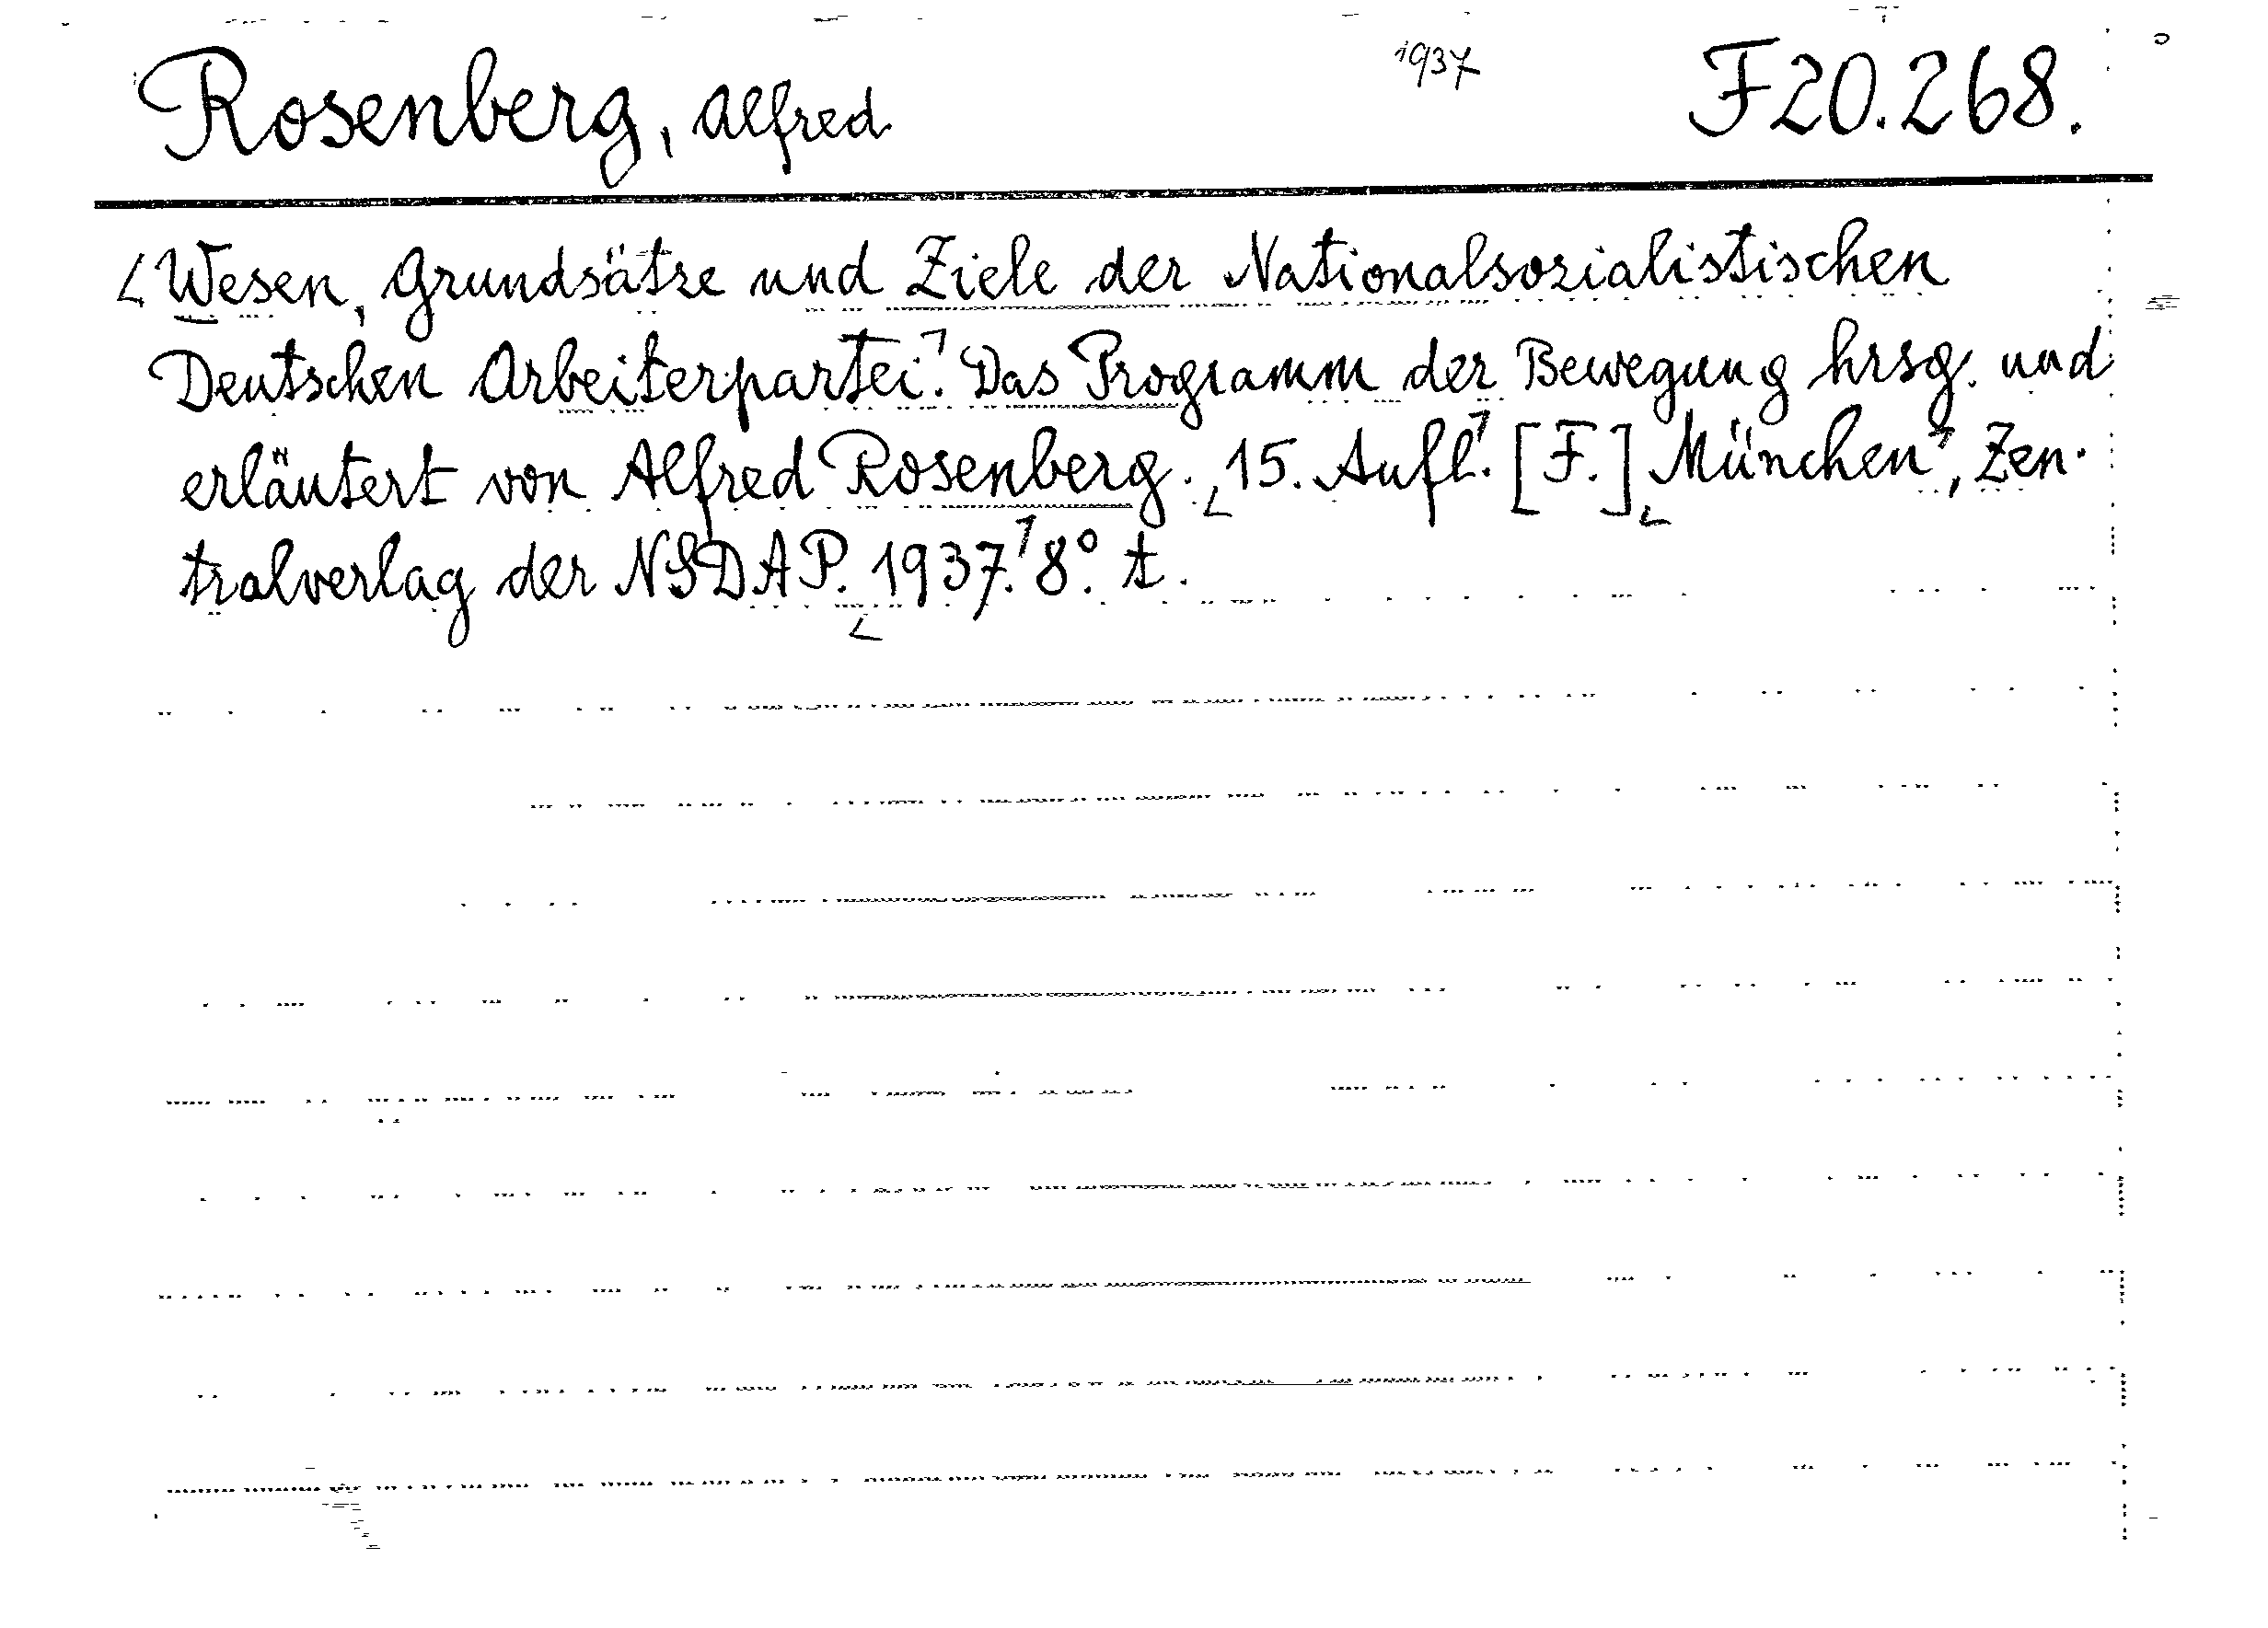 Rosenberg, Alfred 1937 F20.268.
Wesen, Grundsätze und Ziele der Nationalsozialistischen
Deutschen Arbeiterpartei. Das Programm der Bewegung hrsg. und
erläutert von Alfred Rosenberg. 15. Aufl. [F.] München, Zen-
tralverlag der NSDAP. 1937. 8° t.